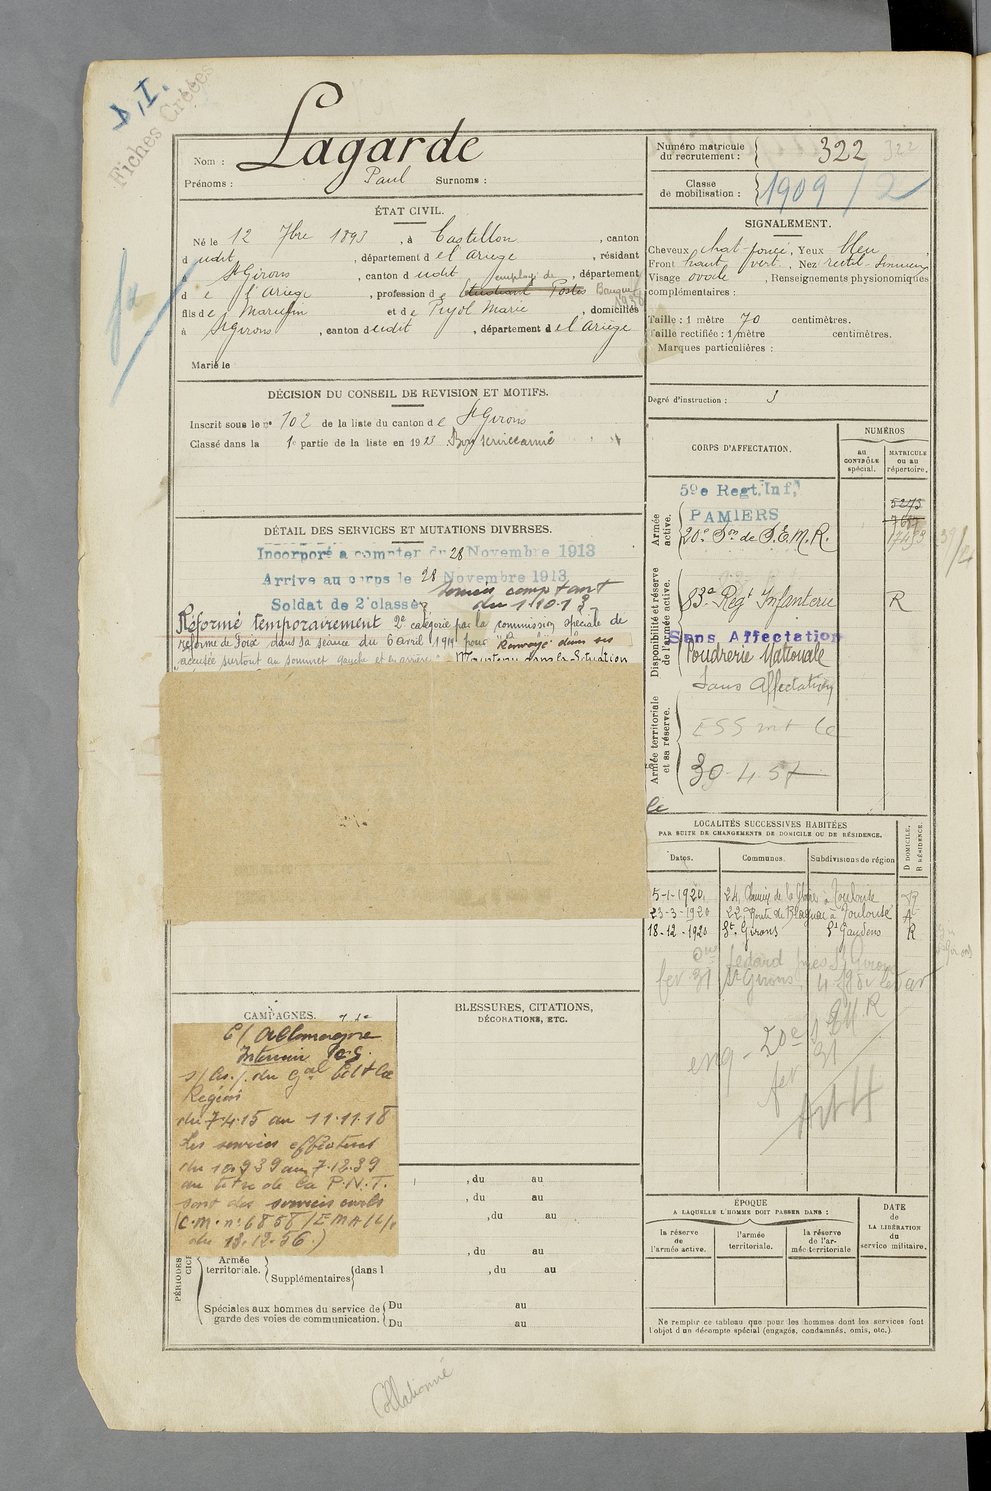 D.I.
Fiches Créées
Nom : Lagarde
Prénoms : Paul Surnoms :
Numéro matricule du recrutement : 322 322
Classe de mobilisation : 1909 / 2
ÉTAT CIVIL.
Né le 12 7bre 1893, à Castillon, canton
d udit, département d e l'ariège, résidant
à St Girons, canton d udit, département
d e l'ariège, profession d e étudiant Postes employé de Banque 1938
fils de et de Pujol Marie, domiciliés
à St Girons, canton dudit, département d e l'ariège
Marié le
SIGNALEMENT.
Cheveux chat-foncé, Yeux bleu
Front haut vert., Nez rectil-sinueux
Visage ovale, Renseignements physionomiques
complémentaires :
Taille : 1 mètre 70 centimètres.
Taille rectifiée : 1 mètre centimètres.
Marques particulières :
Degré d'instruction : 3
DÉCISION DU CONSEIL DE REVISION ET MOTIFS.
Inscrit sous le n° 102 de la liste du canton de St Girons
Classé dans la 1e partie de la liste en 1913 Bon service armé
CORPS D'AFFECTATION.
NUMÉROS
AU CONTRÔLE spécial.
MATRICULE ou au répertoire.
Armée active.
59e Regt. Inf,
PAMIERS
20e Son de S.E.M.R.
Disponibilité et réserve de l'armée active.
83e Regt Infanterie R
Sans Affectation
Poudrerie Nationale
Sans affectation
Armée territoriale et sa réserve.
30-4-57
DÉTAIL DES SERVICES ET MUTATIONS DIVERSES.
Incorporé a compter du 28 Novembre 1913
Arrive au corps le 28 Novembre 1913
Soldat de 2e classe, services comptant
du 1.10.13
Réformé temporairement 2e catégorie par la commission spéciale de
réforme de Foix dans sa séance du 6 avril 1914 pour
accusée surtout au sommet gauche et en arrière" Maintenu dans la Situation
LOCALITÉS SUCCESSIVES HABITÉES
PAR SUITE DE CHANGEMENTS DE DOMICILE OU DE RÉSIDENCE.
Dates. Communes. Subdivisions de région D DOMICILE. R RÉSIDENCE.
5-1-1920 24, Toulouse R
23-3-1920 22, Route de Blagnac à Toulouse
18-12-1920 St. Girons St Gaudens R
Ledard près St Girons
fev-31 St Girons
CAMPAGNES.
C/ Allemagne
Intérieur
du 7.4.15 au 11.11.18
Les services effectués
du 10.9.39 au 7.12.39
au titre de la P.N.T.
sont des services civils
(C.M. n° 6858/EMA/L/
du 13.12.56.)
BLESSURES, CITATIONS,
DÉCORATIONS, ETC.
, du au
, du au
, du au
, du au
Armée territoriale. Supplémentaires dans l , du au
Spéciales aux hommes du service de garde des voies de communication. Du au
Du au
ÉPOQUE
A LAQUELLE L'HOMME DOIT PASSER DANS :
la réserve de l'armée active.
l'armée territoriale.
la réserve de l'armée territoriale
DATE de LA LIBÉRATION du service militaire.
Ne remplir ce tableau que pour les hommes dont les services font
l'objet d'un décompte spécial (engagés, condamnés, omis, etc.)
Collationné